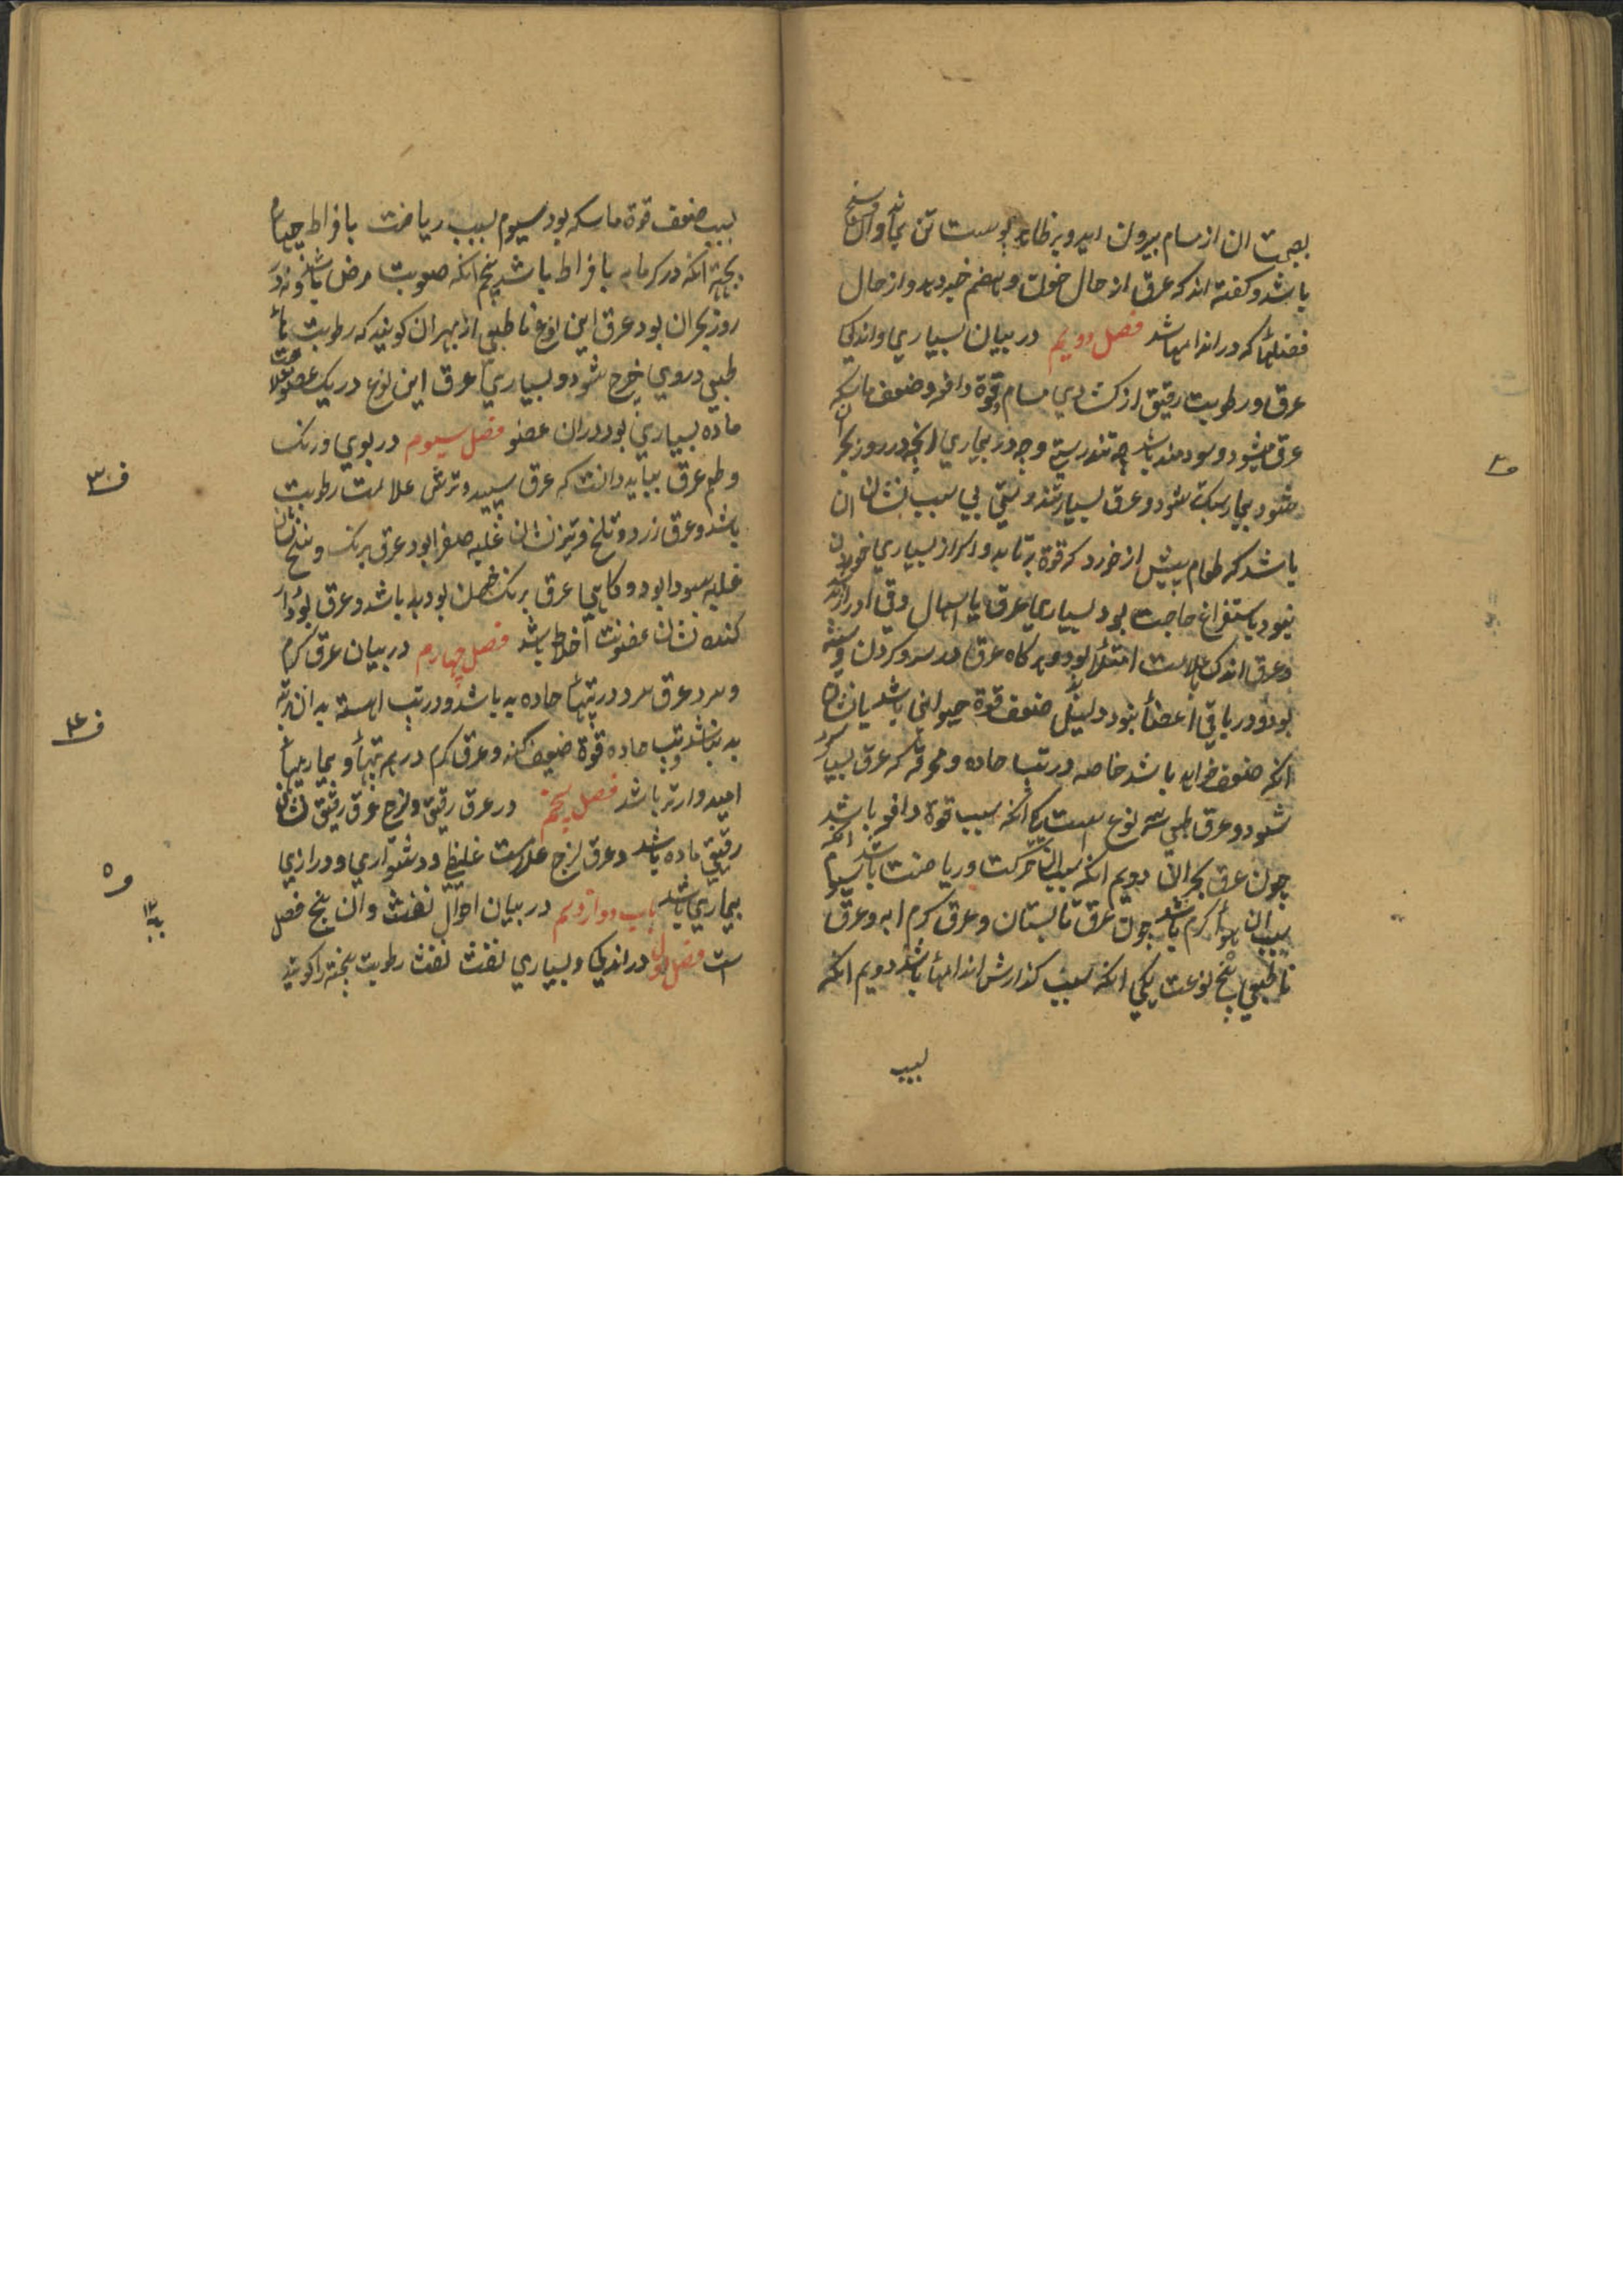 بصحت ان از مسام بیرون اید و بر ظاهر پوست تن بماند وان وسخ
باشد و کفته اند که عرق از حال خون و هضم خبر دهد و از حال
فضلها که در اندامها باشد فصل دویم در بیان بسیاری و اندکی
عرق و رطوبت رقیق از کشادی مسام و قوة دافعه و ضعف ماسکه
عرق میشود و سودمند باشد چه تندرستی و چه در بیماری انچه در روز بحران
شود بیمار سبک شود و عرق بسیار تندرستی بی سبب نشان ان
باشد که طعام بیش از خورد که قوة برتابد و اکر از بسیاری خوردن
نبود باستفراغ حاجت بود بسیاری عرق با اسهال وقی ادرار
وعرق اندک علامت امتلا بود و هر کاه عرق در سر و کردن و سینه
بود و در باقی اعضا نبود دلیل ضعف قوة حیوانی باشد یا نشان
انکه ضعف خواهد باشد خاصه در تب حاده و محرقه که عرق بسیار
شود و عرق طبیعی سه نوع است یکی انکه سبب قوة دافعه باشد
چون عرق بحران دویم انکه سبب ان حرکت و ریاضت باشد سیوم انکه
سبب ان هوا کرم باشد چون عرق تابستان و عرق کرم ابه و عرق
نا طبیعی پنج نوعست یکی انکه سبب کذارش اندامها باشد دویم انکه
لسبب
ف۲
لسبب ضعف قوة ماسکه بود سیوم لسبب ریاضت بافراط چهارم
بجهة انکه در کرمابه بافراط باشد پنجم انکه صعوبت مرض باشد و نه در
روز بحران بود عرق این نوع نا طبیعی از بهر ان کویند که رطوبت نا
طبیعی در وی خرج شود و بسیاری عرق این نوع در یک عضو علامت
ماده بسیاری بود در ان عضو فصل سیوم در بوی و رنک
و طعم عرق بباید دانست که عرق سپید و ترش علامت رطوبت
باشد و عرق زرد و تلخ و تیز نشان غلبه صفرا بود و عرق برنک و تلخ نشان
غلبه سودا بود و کاهی عرق برنک خون بود بد باشد و عرق بودار
کنده نشان عفونت اخلاط باشد فصل چهارم در بیان عرق کرم
و سرد عرق سرد در تبها حاده بد باشد و در تب اهسته به ان مرتبه
بد نباشد و تب حاده قوة ضعیف کند و عرق کرم در همه تبها و بیماریها
امیدوارتر باشد فصل پنجم در عرق رقیق و لزج عرق رقیق نشان
رقیقی ماده باشد و عرق لزج علامت غلیظی و دشواری و درازی
بیماری باشد باب دوازدهم در بیان احوال نفث و ان پنج فصل
است فصل اول در اندکی و بسیاری نفث نفث رطوبت پخته را کویند
ف۳
ف۴
ف۵